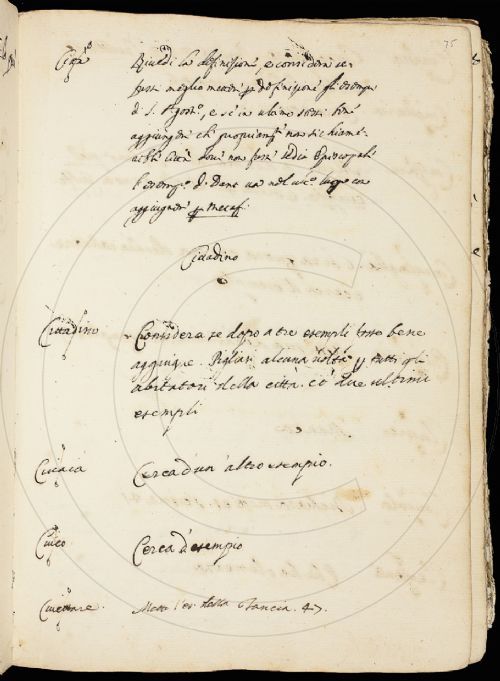 75
Città Rivedi la definisione, e considera se
fusse meglio metter per definisione gli esempi
di S. Agost.º, e se in ultimo stesse bene
aggiungere che propriamte non si chiama-
città dove non fusse sedia Episcopale
L'esempio di Dant va nel luogo con
aggiugner per metaf.
Cittadino
Cittadino Considera se dopo a tre esempli stesse bene
aggiugne. Pigliasi alcuna volta p tutti gli
abitatori della città. co due ultimi
esempli
Civaia Cerca d'un' altro esempio.
Civeo Cerca d'esempio
Civettare. Metti l'es. della Tancia. 47.